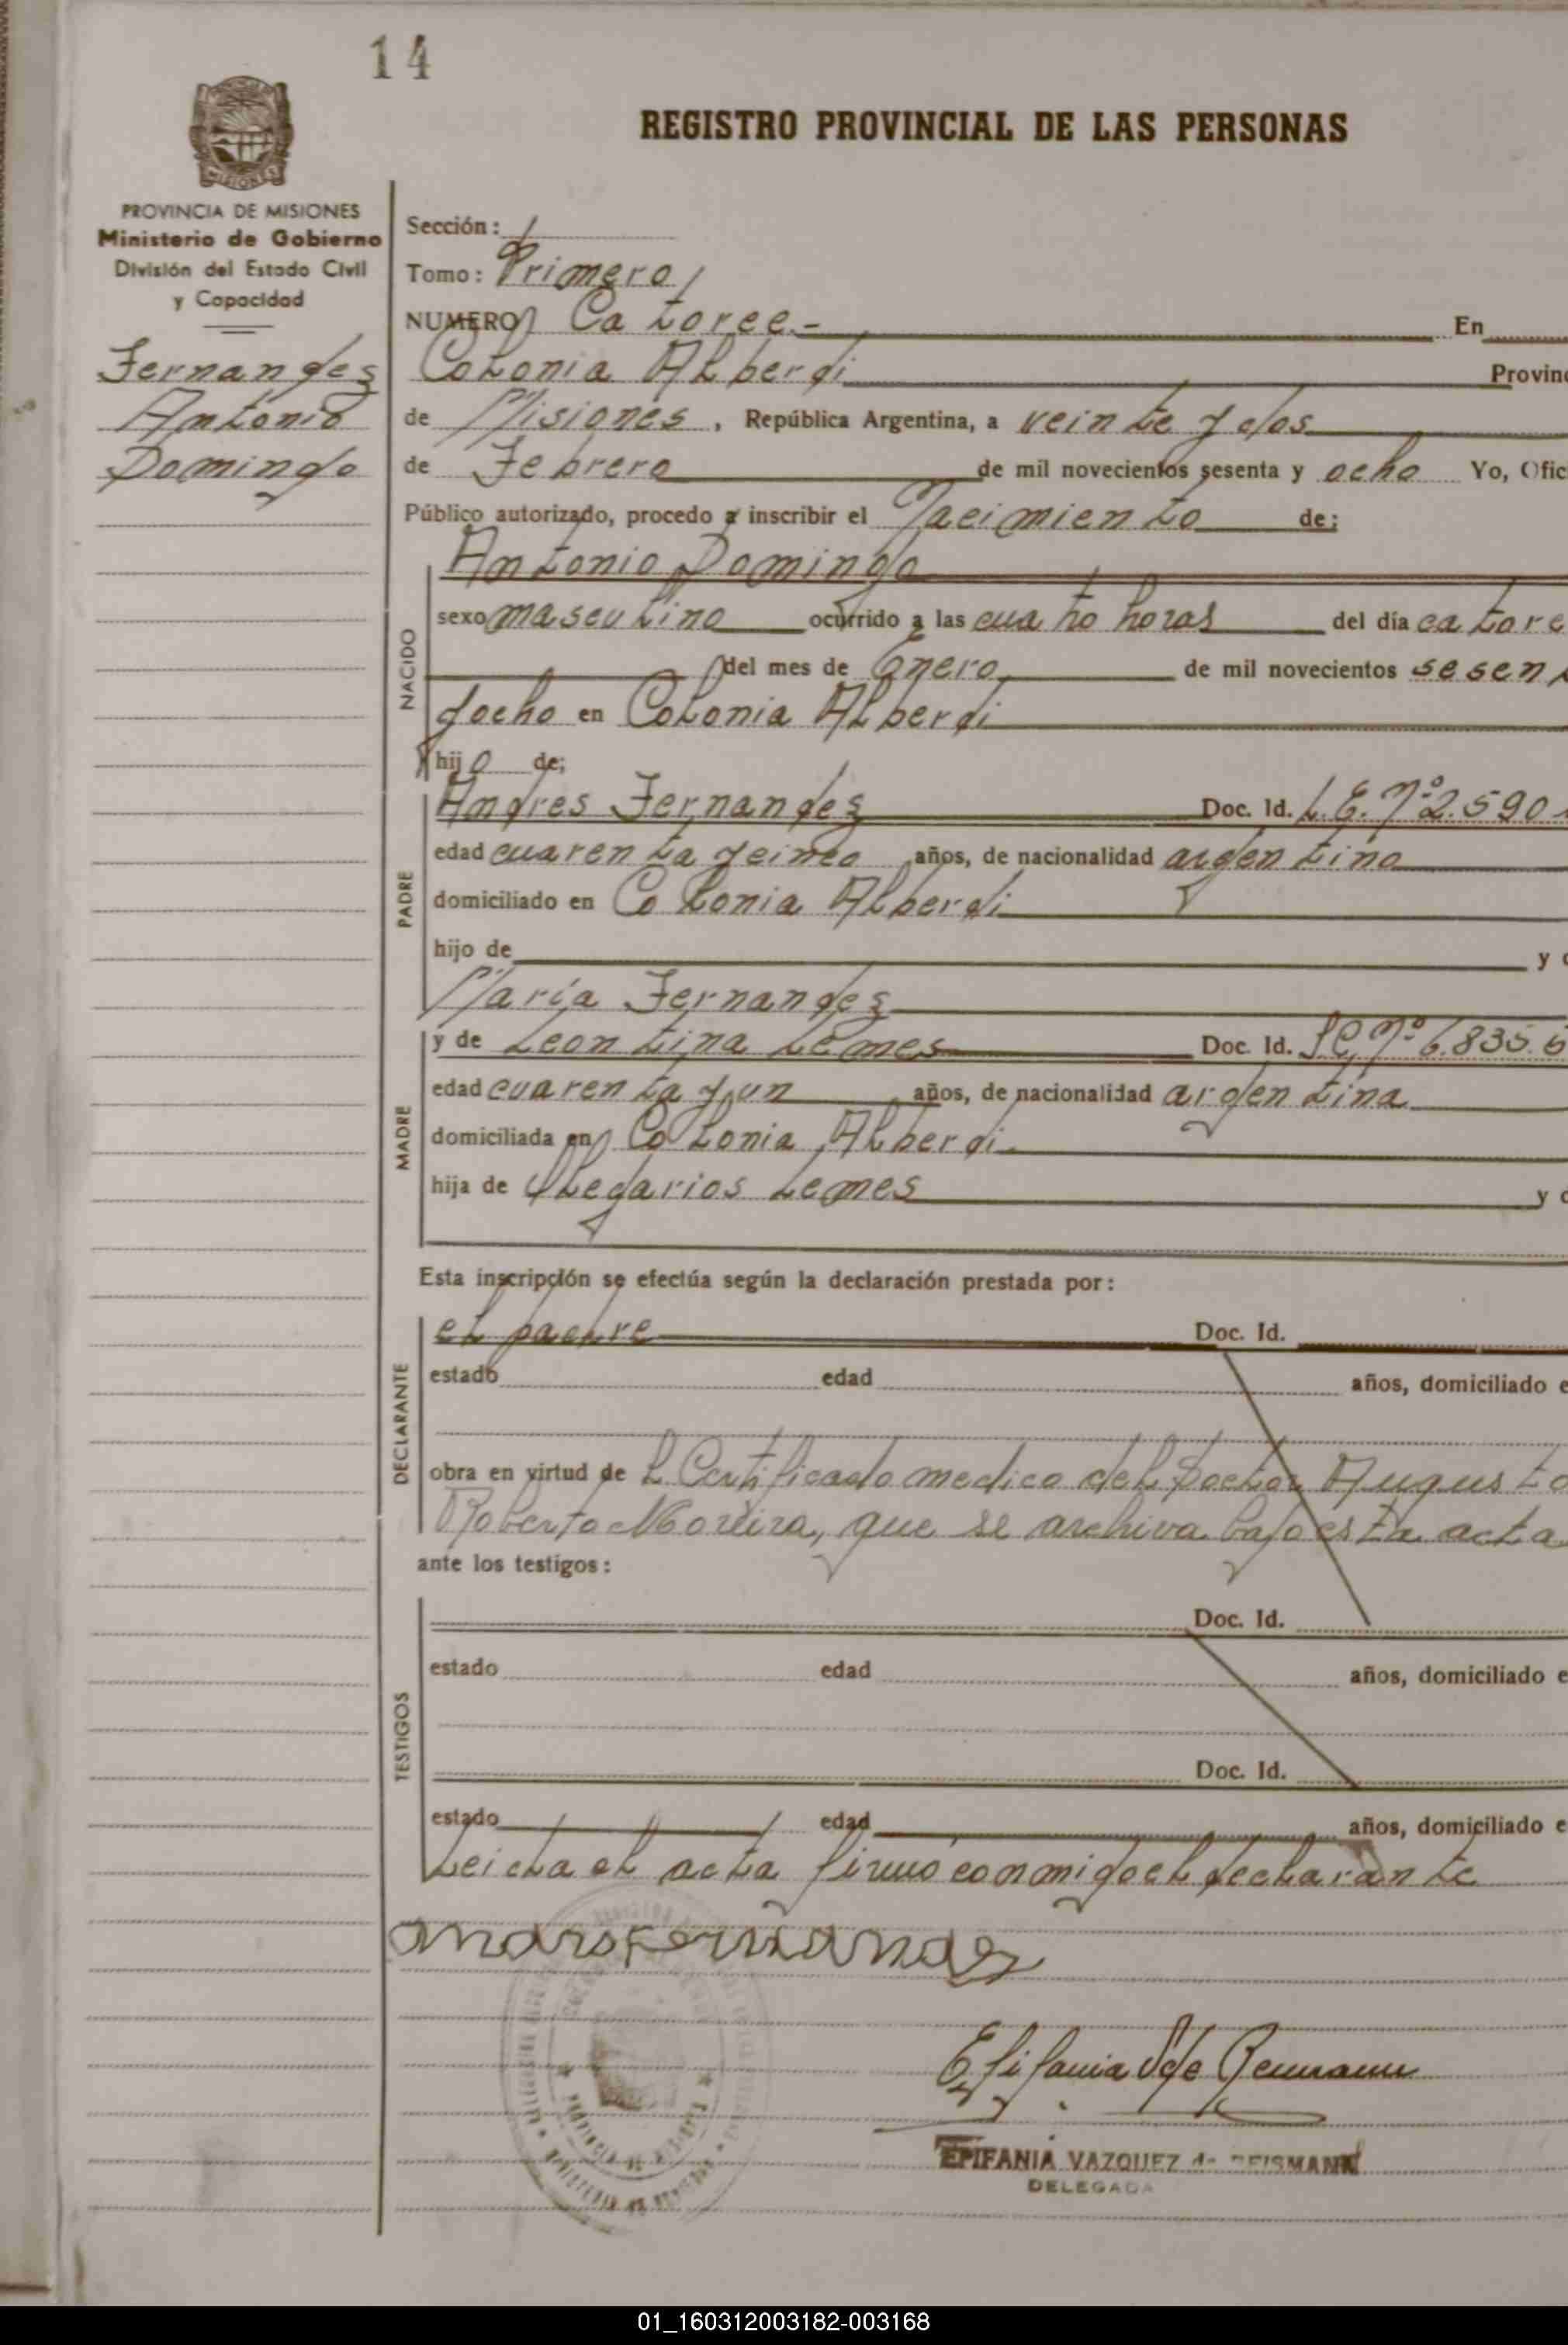 14
REGISTRO PROVINCIAL DE LAS PERSONAS
MISIONES
PROVINCIA DE MISIONES
Ministerio de Gobierno
División del Estado Civil
y Capacidad
Fernandez
Antonio
Domingo
Sección: 1
Tomo: Primero
NUMERO Catorce.- En
Colonia Alberdi Provinc
de Misiones, República Argentina, a veinte y dos
de Febrero de mil novecientos sesenta y ocho Yo, Ofic
Público autorizado, procedo a inscribir el Nacimiento de:
NACIDO
Antonio Domingo
sexo masculino ocurrido a las cuatro horas del día catorc
del mes de Enero de mil novecientos sesent
y ocho en Colonia Alberdi
hijo de:
PADRE
Andres Fernandez Doc. Id. L.E. Nº 2.590
edad cuarenta y cinco años, de nacionalidad argentino
domiciliado en Colonia Alberdi
hijo de y d
María Fernandez
MADRE
y de Leontina Lemes Doc. Id. L.C. Nº 6.835.
edad cuarenta y un años, de nacionalidad argentina
domiciliada en Colonia Alberdi
hija de Olegarios Lemes y d
Esta inscripción se efectúa según la declaración prestada por:
DECLARANTE
el padre Doc. Id.
estado edad años, domiciliado e
obra en virtud de l Certificado medico del Doctor Augusto
Roberto Moreira, que se archiva bajo esta acta
ante los testigos:
TESTIGOS
Doc. Id.
estado edad años, domiciliado e
Doc. Id.
estado edad años, domiciliado e
Leida el acta firmó conmigo el declarante
Epifania V de Reismann
EPIFANIA VAZQUEZ de REISMANN
DELEGADA
01_160312003182-003168